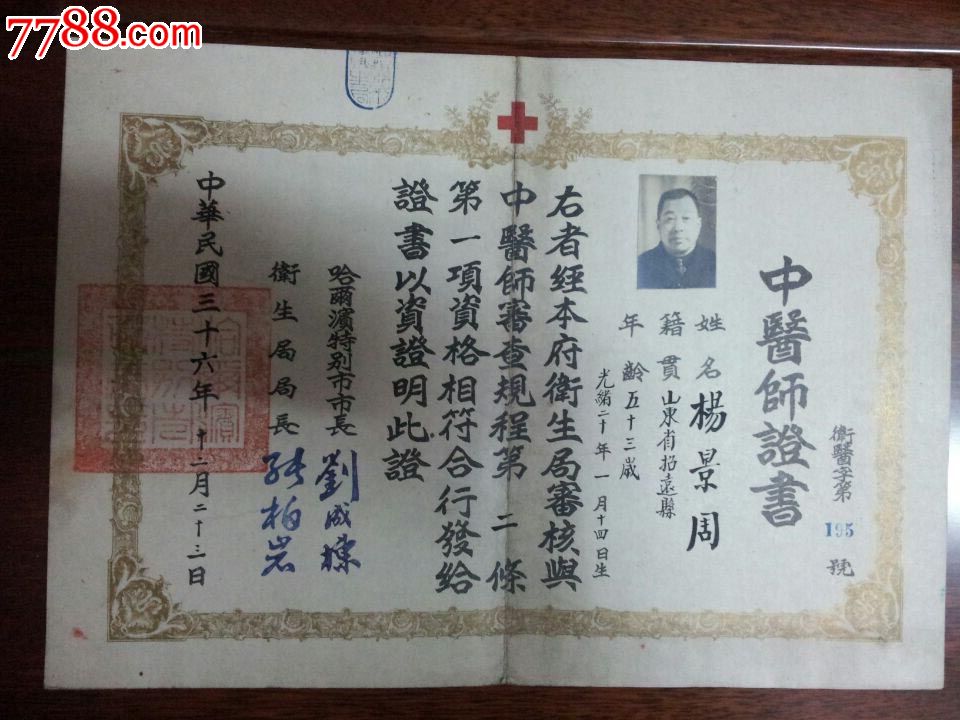 7788.com
中醫師證書
衛醫字第195號
姓名楊景周
籍貫山東省招遠縣
年齡五十三歲
光緒二十年一月十四日生
右者經本府衛生局審核與
中醫師審查規程第二條
第一項資格相符合行發給
證書以資證明此證
哈爾濱特別市市長劉成棟
衛生局局長張柏岩
中華民國三十六年十二月二十三日